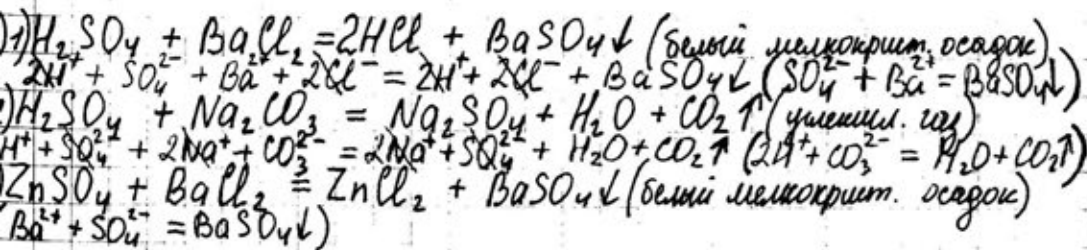 )1)H₂SO₄ + BaCl₂ = 2HCl + BaSO₄↓ (белый мелкокрист. осадок)
2H⁺ + SO₄²⁻ + Ba²⁺ + 2Cl⁻ = 2H⁺ + 2Cl⁻ + BaSO₄↓ (SO₄²⁻ + Ba²⁺ = BaSO₄↓)
)H₂SO₄ + Na₂CO₃ = Na₂SO₄ + H₂O + CO₂↑ (углекисл. газ)
H⁺ + SO₄²⁻ + 2Na⁺ + CO₃²⁻ = 2Na⁺ + SO₄²⁻ + H₂O + CO₂↑ (2H⁺ + CO₃²⁻ = H₂O + CO₂↑)
)ZnSO₄ + BaCl₂ = ZnCl₂ + BaSO₄↓ (белый мелкокрист. осадок)
(Ba²⁺ + SO₄²⁻ = BaSO₄↓)